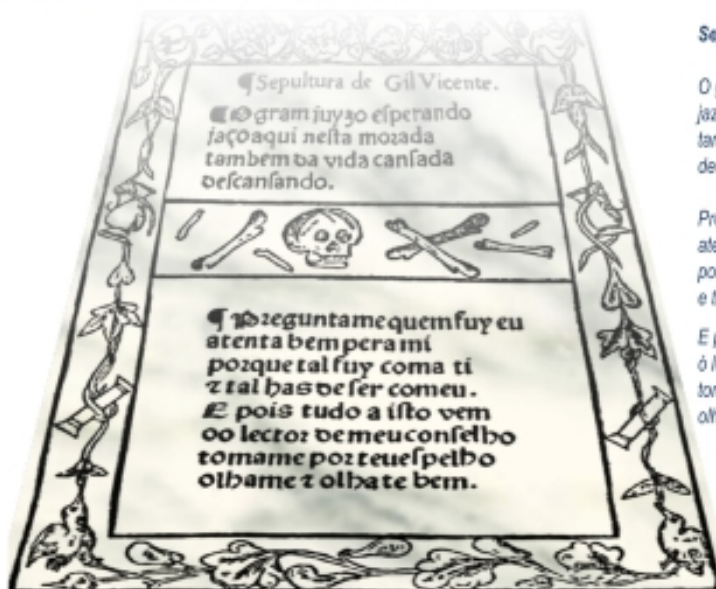 ¶Sepultura de Gil Vicente.
¶O gram juyzo esperando
jaço aqui nesta morada
tambem da vida cansada
descansando.
¶Preguntame quem fuy eu
atenta bem pera mi
porque tal fuy coma ti
⁊ tal has de ser com eu.
E pois tudo a isto vem
oo lector de meu conselho
tomame por teu espelho
olhame ⁊ olhate bem.
Se
O
jaz
tam
de
Pr
ate
po
e t
E p
ó l
tom
olh